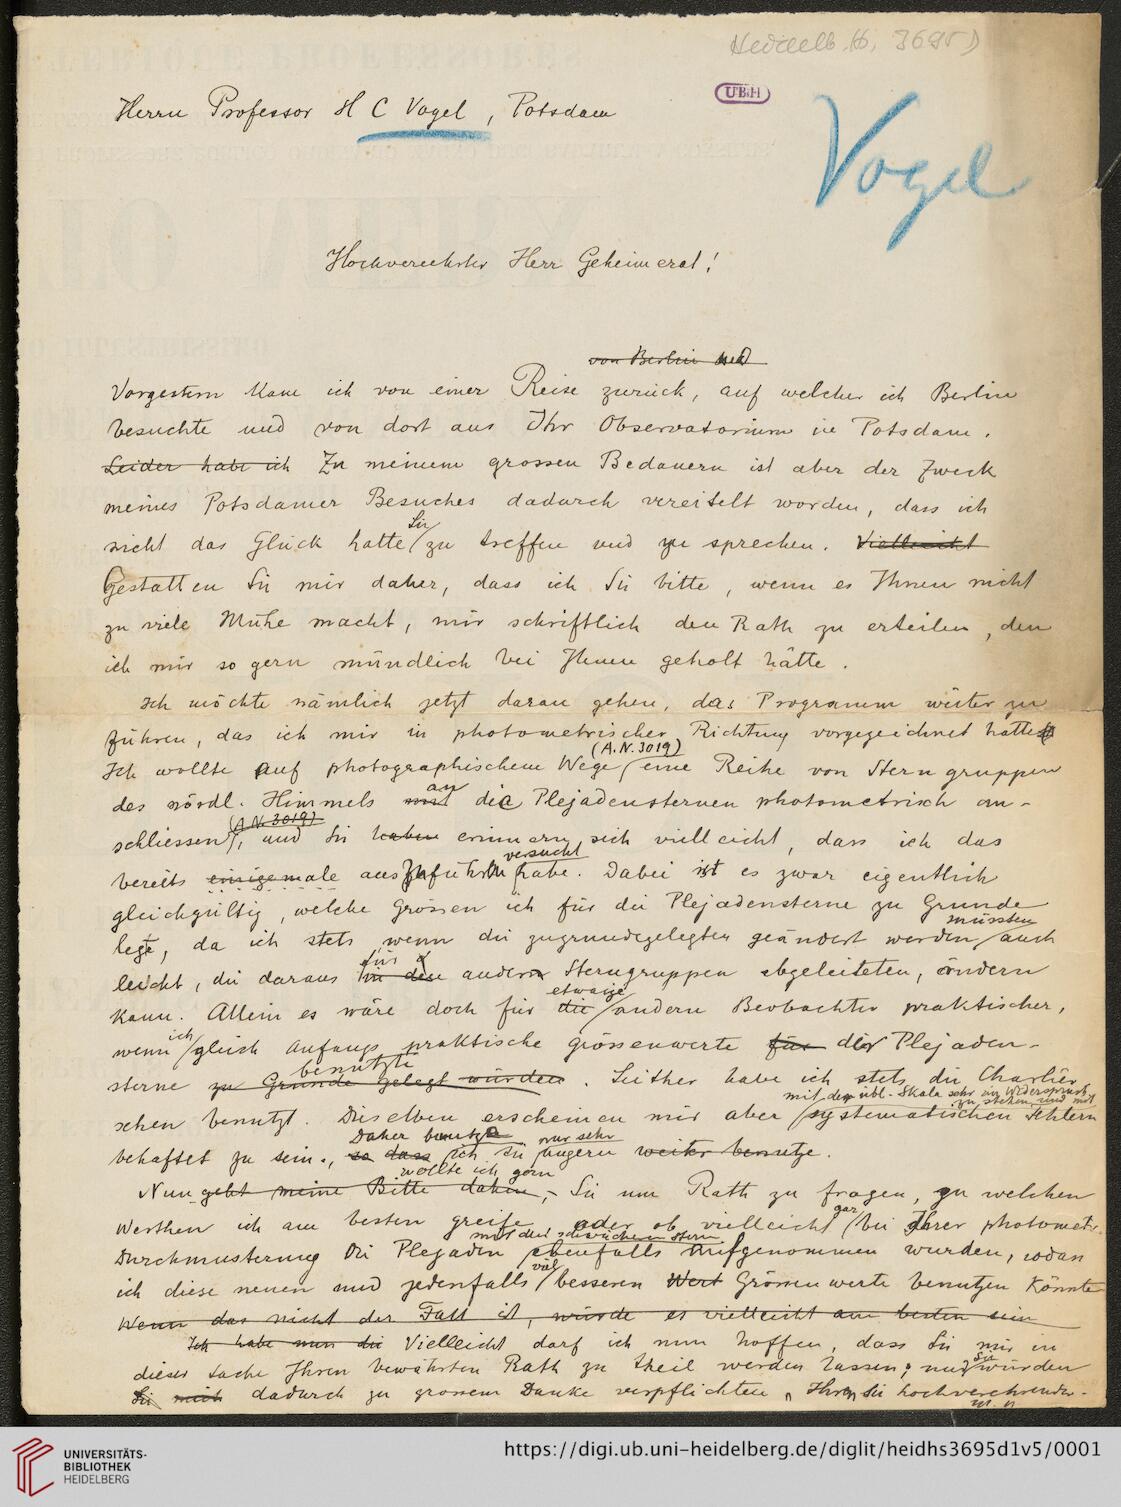 Heidelb. Hs. 3695 D
UBH
Herrn Professor H C Vogel, Potsdam
Vogel
Hochverehrter Herr Geheimerat!
von Berlin und
Vorgestern kam ich von einer Reise zurück, auf welcher ich Berlin
besuchte und von dort aus Ihr Observatorium in Potsdam.
Leider habe ich Zu meinem grossen Bedauern ist aber der Zweck
meines Potsdamer Besuches dadurch vereitelt worden, dass ich
nicht das Glück hatte Sie zu treffen und zu sprechen. Vielleicht
Gestatten Sie mir daher, dass ich Sie bitte, wenn es Ihnen nicht
zu viele Mühe macht, mir schriftlich den Rath zu erteilen, den
ich mir so gern mündlich bei Ihnen geholt hätte.
Ich möchte nämlich jetzt daran gehen, das Programm weiter zu
führen, das ich mir in photometrischer Richtung vorgezeichnet hatte
(A.N. 3019)
Ich wollte auf photographischem Wege eine Reihe von Sterngruppen
an
des nördl. Himmels mit die Plejadensternen photometrisch an-
(A.N. 3019)
schliessen, und Sie haben erinnern sich vielleicht, dass ich das
versucht
bereits einigemale auszuführen habe. Dabei ist es zwar eigentlich
gleichgültig, welche Grössen ich für die Plejadensterne zu Grunde
müssten
legte, da ich stets, wenn die zugrundegelegten geändert werden auch
für
leicht, die daraus in den andern Sterngruppen abgeleiteten, ändern
etwaige
kann. Allein es wäre doch für die andern Beobachter praktischer,
ich
wenn gleich Anfangs praktische Grössenwerte für der Plejaden-
benutzte
sterne zu Grunde gelegt würden. Seither habe ich stets die Charlier
mit der übl. Skala sehr im Widerspruch
zu stehen und mit
schen benutzt. Dieselben erscheinen mir aber systematischen Fehlern
Daher benutze nur sehr
behaftet zu sein., so dass ich sie ungern weiter benutze.
wollte ich gern
Nun geht meine Bitte dahin, Sie um Rath zu fragen, zu welchen
gar
Werthen ich am besten greife, oder ob vielleicht bei Ihrer photometr.
mit den schwächeren Stern
Durchmusterung die Plejaden ebenfalls aufgenommen wurden, sodan
viel
ich diese neuen und jedenfalls besseren Wert Grössenwerte benutzen könnte
Wenn das nicht der Fall ist, würde es vielleicht am besten sein
Ich habe nun die Vielleicht darf ich nun hoffen, dass Sie mir in
Sie
dieser Sache Ihren bewährten Rath zu theil werden lassen; und würden
Sie mich dadurch zu grossem Danke verpflichten, Ihren Sie hochverehrenden.
UNIVERSITÄTS-
BIBLIOTHEK
HEIDELBERG
https://digi.ub.uni-heidelberg.de/diglit/heidhs3695d1v5/0001